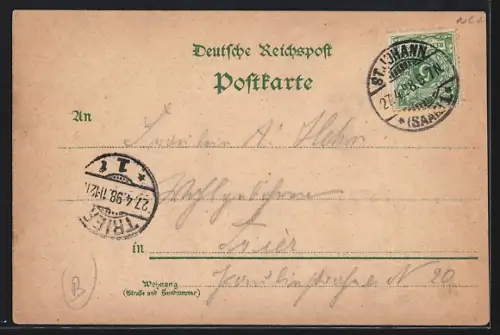 Deutsche Reichspost
Postkarte
ST. JOHANN
27.4.98.
*(SAAR)
An Fräulein A. Hehn
Wohlgeboren
TRIER
27.4.98.
* 1 t
in Trier
Wohnung
(Straße und Hausnummer)
N 20
B